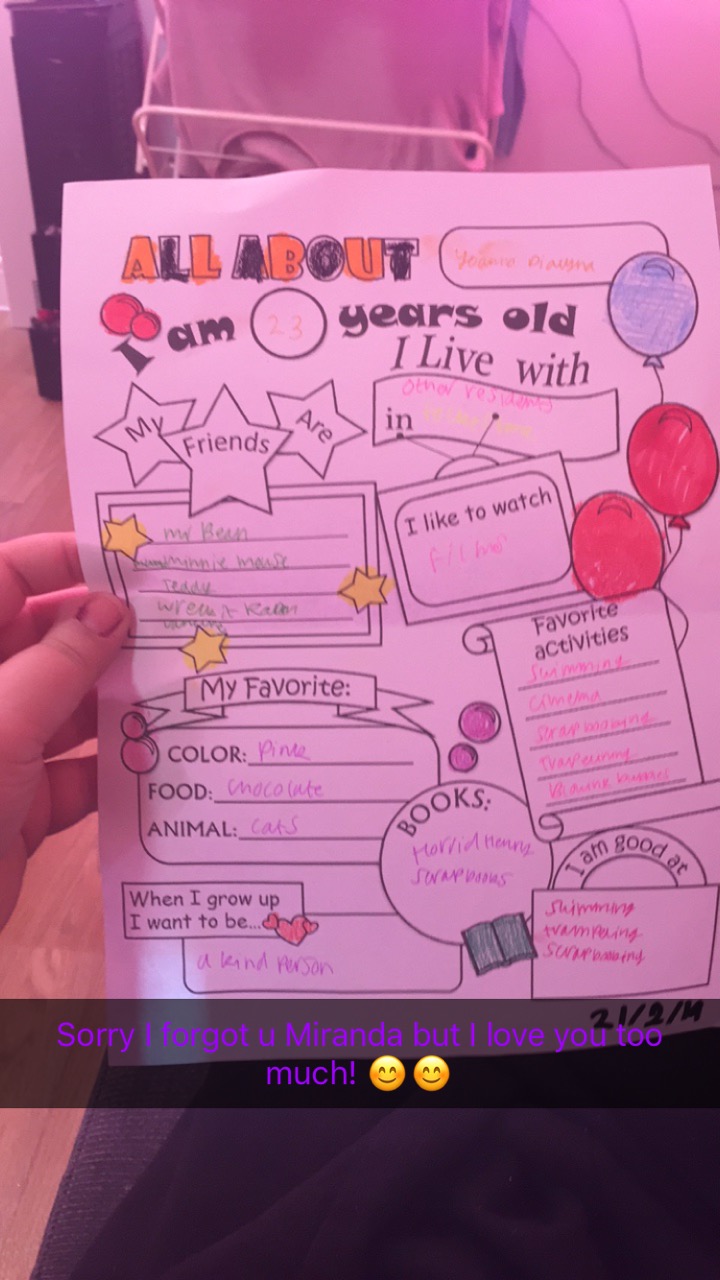 ALL ABOUT
I am 23 years old
I Live with
other residents
in
My Friends Are
mr Bean
minnie mouse
teddy
I like to watch
films
Favorite
activities
swimming
cinema
scrapbooking
My Favorite:
COLOR: Pink
FOOD: Chocolate
ANIMAL: cats
BOOKS:
Horrid Henry
scrapbooks
I am good at
swimming
scrapbooking
When I grow up
I want to be...
a kind person
Sorry I forgot u Miranda but I love you too
much! 😊😊